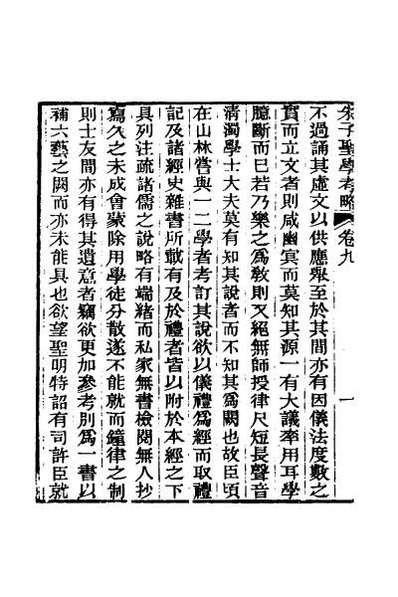 朱子聖學考略 卷九 一
不過誦其虛文以供應舉至於其間亦有因儀法度數之
實而立文者則咸幽冥而莫知其源一有大議率用耳學
臆斷而已若乃樂之爲敎則又絕無師授律尺短長聲音
淸濁學士大夫莫有知其說者而不知其爲闕也故臣頃
在山林嘗與一二學者考訂其說欲以儀禮爲經而取禮
記及諸經史雜書所載有及於禮者皆以附於本經之下
具列注疏諸儒之說略有端緒而私家無書檢閱無人抄
寫久之未成會蒙除用學徒分散遂不能就而鐘律之制
則士友間亦有得其遺意者竊欲更加參考別爲一書以
補六藝之闕而亦未能具也欲望聖明特詔有司許臣就